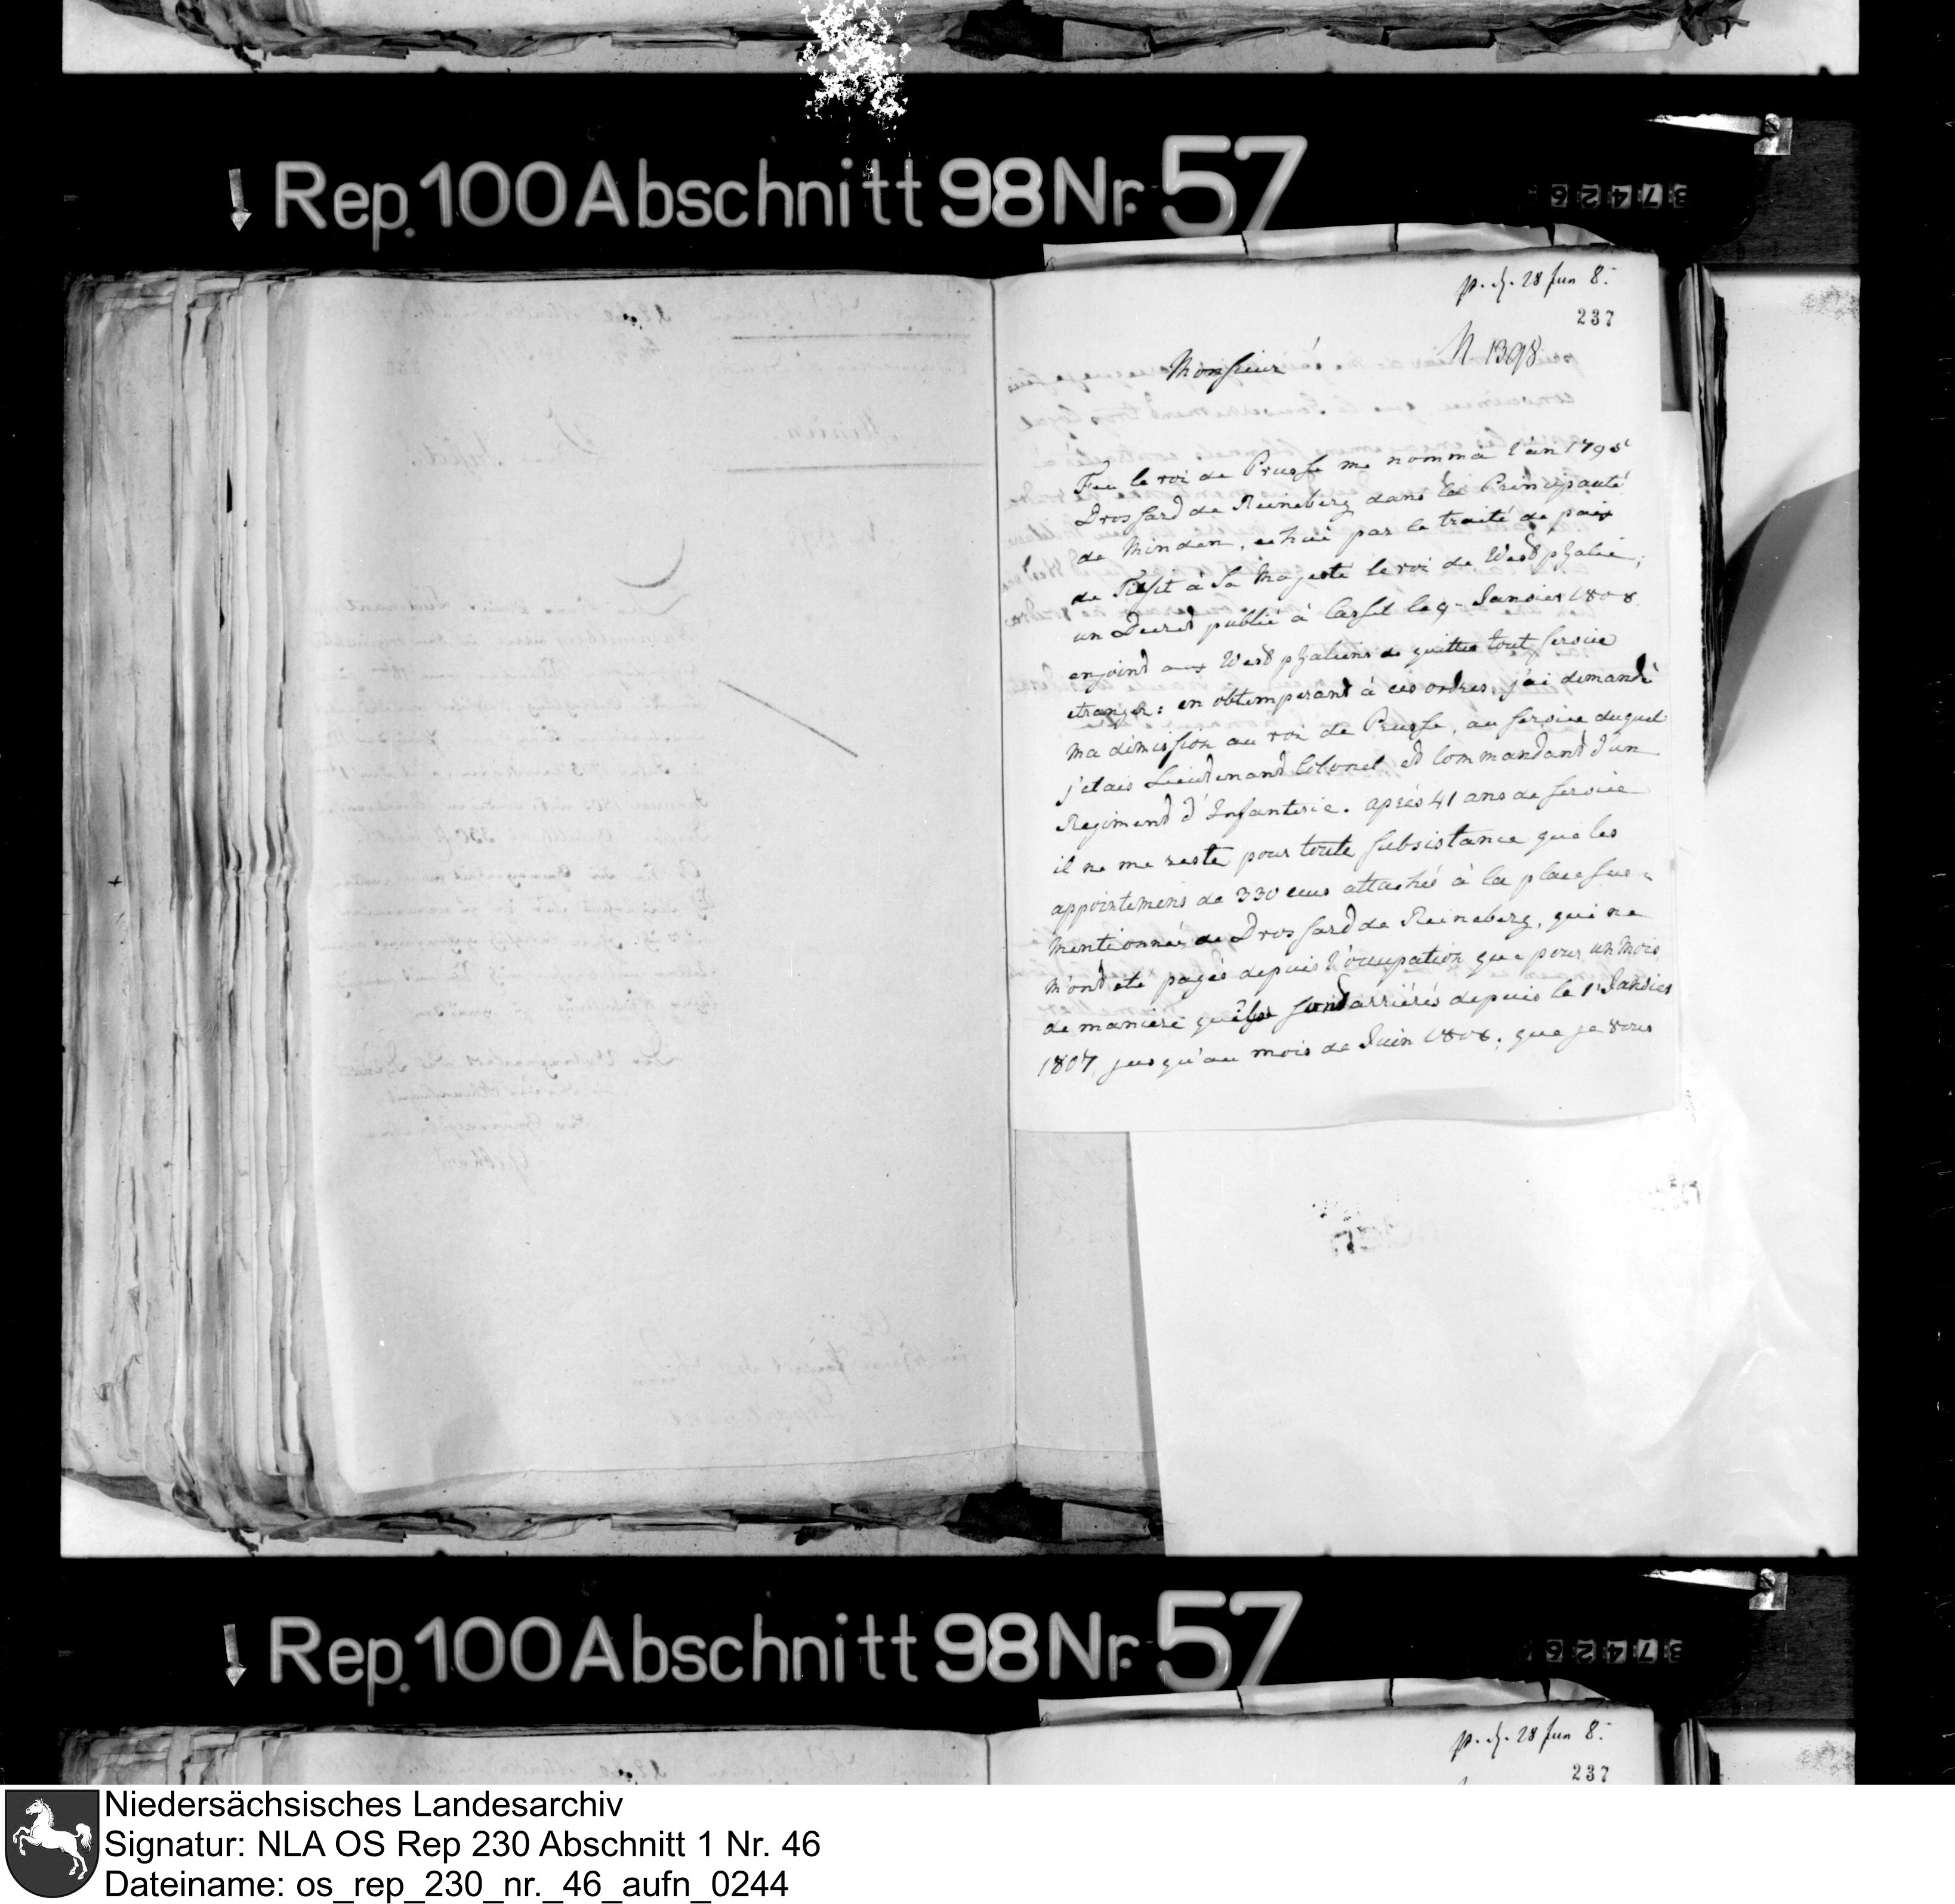 Rep. 100 Abschnitt 98 Nr. 57
37426
p. d. 28 Jun 8.
237
N. 1398
Monsieur
Feu le roi de Prusse me nomma l'an 1795
Drossard de Reineberg dans la Principauté
de Minden, echué par le traité de paix
de Tilsit à Sa Majesté le roi de Westphalie;
un Decret publié à Cassel le 9 Janvier 1808
enjoind aux Westphaliens de quitter tout service
etranger: en obtemperand à ces ordres, j'ai demandé
ma dimission au roi de Prusse, au service duquel
j'etais Lieutenand Colonel et Commandand d'un
Regimend d'Infanterie. après 41 ans de service
il ne me reste pour toute subsistance que les
appointemens de 330 ecus attachés à la place sus-
mentionnée de Drossard de Reineberg, qui ne
m'ond eté payés depuis l'occupation que pour un mois
de maniere qu'ils sond arriérés depuis le 1 Janvier
1807, jusqu'au mois de Juin 1808; que je vous
Rep. 100 Abschnitt 98 Nr. 57
37426
p. d. 28 Jun 8.
237
Niedersächsisches Landesarchiv
Signatur: NLA OS Rep 230 Abschnitt 1 Nr. 46
Dateiname: os_rep_230_nr._46_aufn_0244